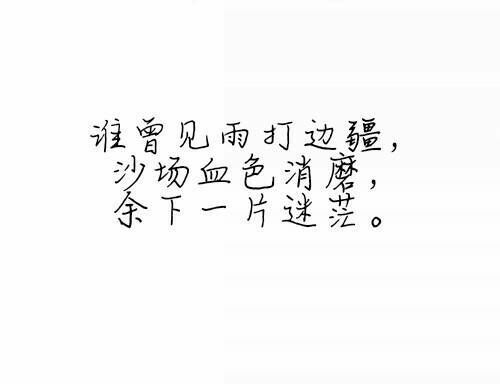 谁曾见雨打边疆，
沙场血色消磨，
余下一片迷茫。